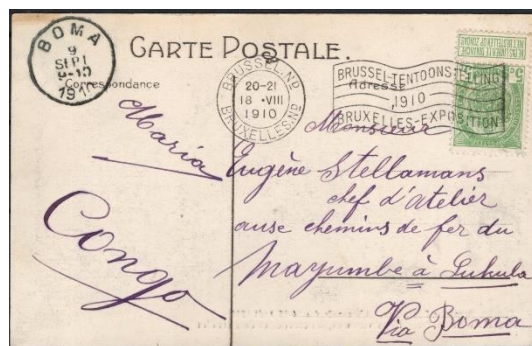 BOMA
9
SEPT
CARTE POSTALE.
Correspondance
Adresse
BRUSSEL.Nd
20-21
18 · VIII
1910
BRUXELLES.Nd
BRUSSEL-TENTOONSTELLING
1910
BRUXELLES-EXPOSITION
Maria
Congo
Monsieur
Eugène Stellamans
chef d'atelier
ause chemins de fer du
Mayumbe à Lukula
Via Boma